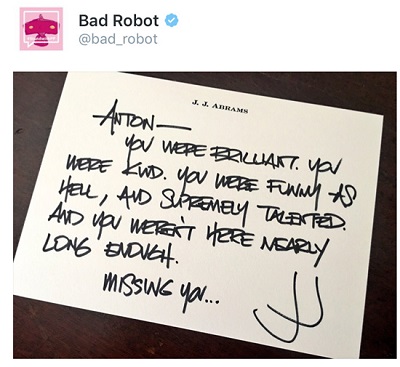 Bad Robot
@bad_robot
J. J. ABRAMS
ANTON—
YOU WERE BRILLIANT. YOU
WERE KIND. YOU WERE FUNNY AS
HELL, AND SUPREMELY TALENTED.
AND YOU WEREN'T HERE NEARLY
LONG ENOUGH.
MISSING YOU...
JJ